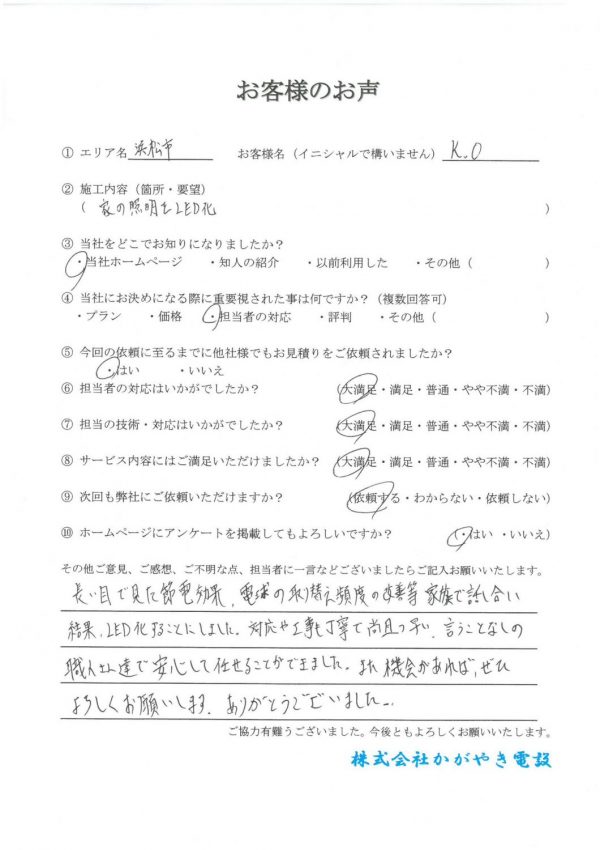 お客様のお声
① エリア名 浜松市 お客様名（イニシャルで構いません） K.O
② 施工内容（箇所・要望）
（ 家の照明をLED化 ）
③ 当社をどこでお知りになりましたか？
・当社ホームページ ・知人の紹介 ・以前利用した ・その他（ ）
④ 当社にお決めになる際に重要視された事は何ですか？（複数回答可）
・プラン ・価格 ・担当者の対応 ・評判 ・その他（ ）
⑤ 今回の依頼に至るまでに他社様でもお見積りをご依頼されましたか？
・はい ・いいえ
⑥ 担当者の対応はいかがでしたか？ （大満足・満足・普通・やや不満・不満）
⑦ 担当の技術・対応はいかがでしたか？ （大満足・満足・普通・やや不満・不満）
⑧ サービス内容にはご満足いただけましたか？ （大満足・満足・普通・やや不満・不満）
⑨ 次回も弊社にご依頼いただけますか？ （依頼する・わからない・依頼しない）
⑩ ホームページにアンケートを掲載してもよろしいですか？ （・はい ・いいえ）
その他ご意見、ご感想、ご不明な点、担当者に一言などございましたらご記入お願いいたします。
長い目で見た節電効果、電球の取り替え頻度の改善等 家族で話し合い
結果、LED化することにしました。対応や工事も丁寧で尚且つ早い、言うことなしの
職人さん達で安心して任せることができました。また機会があれば、ぜひ
よろしくお願いします。ありがとうございました。
ご協力有難うございました。今後ともよろしくお願いいたします。
株式会社かがやき電設